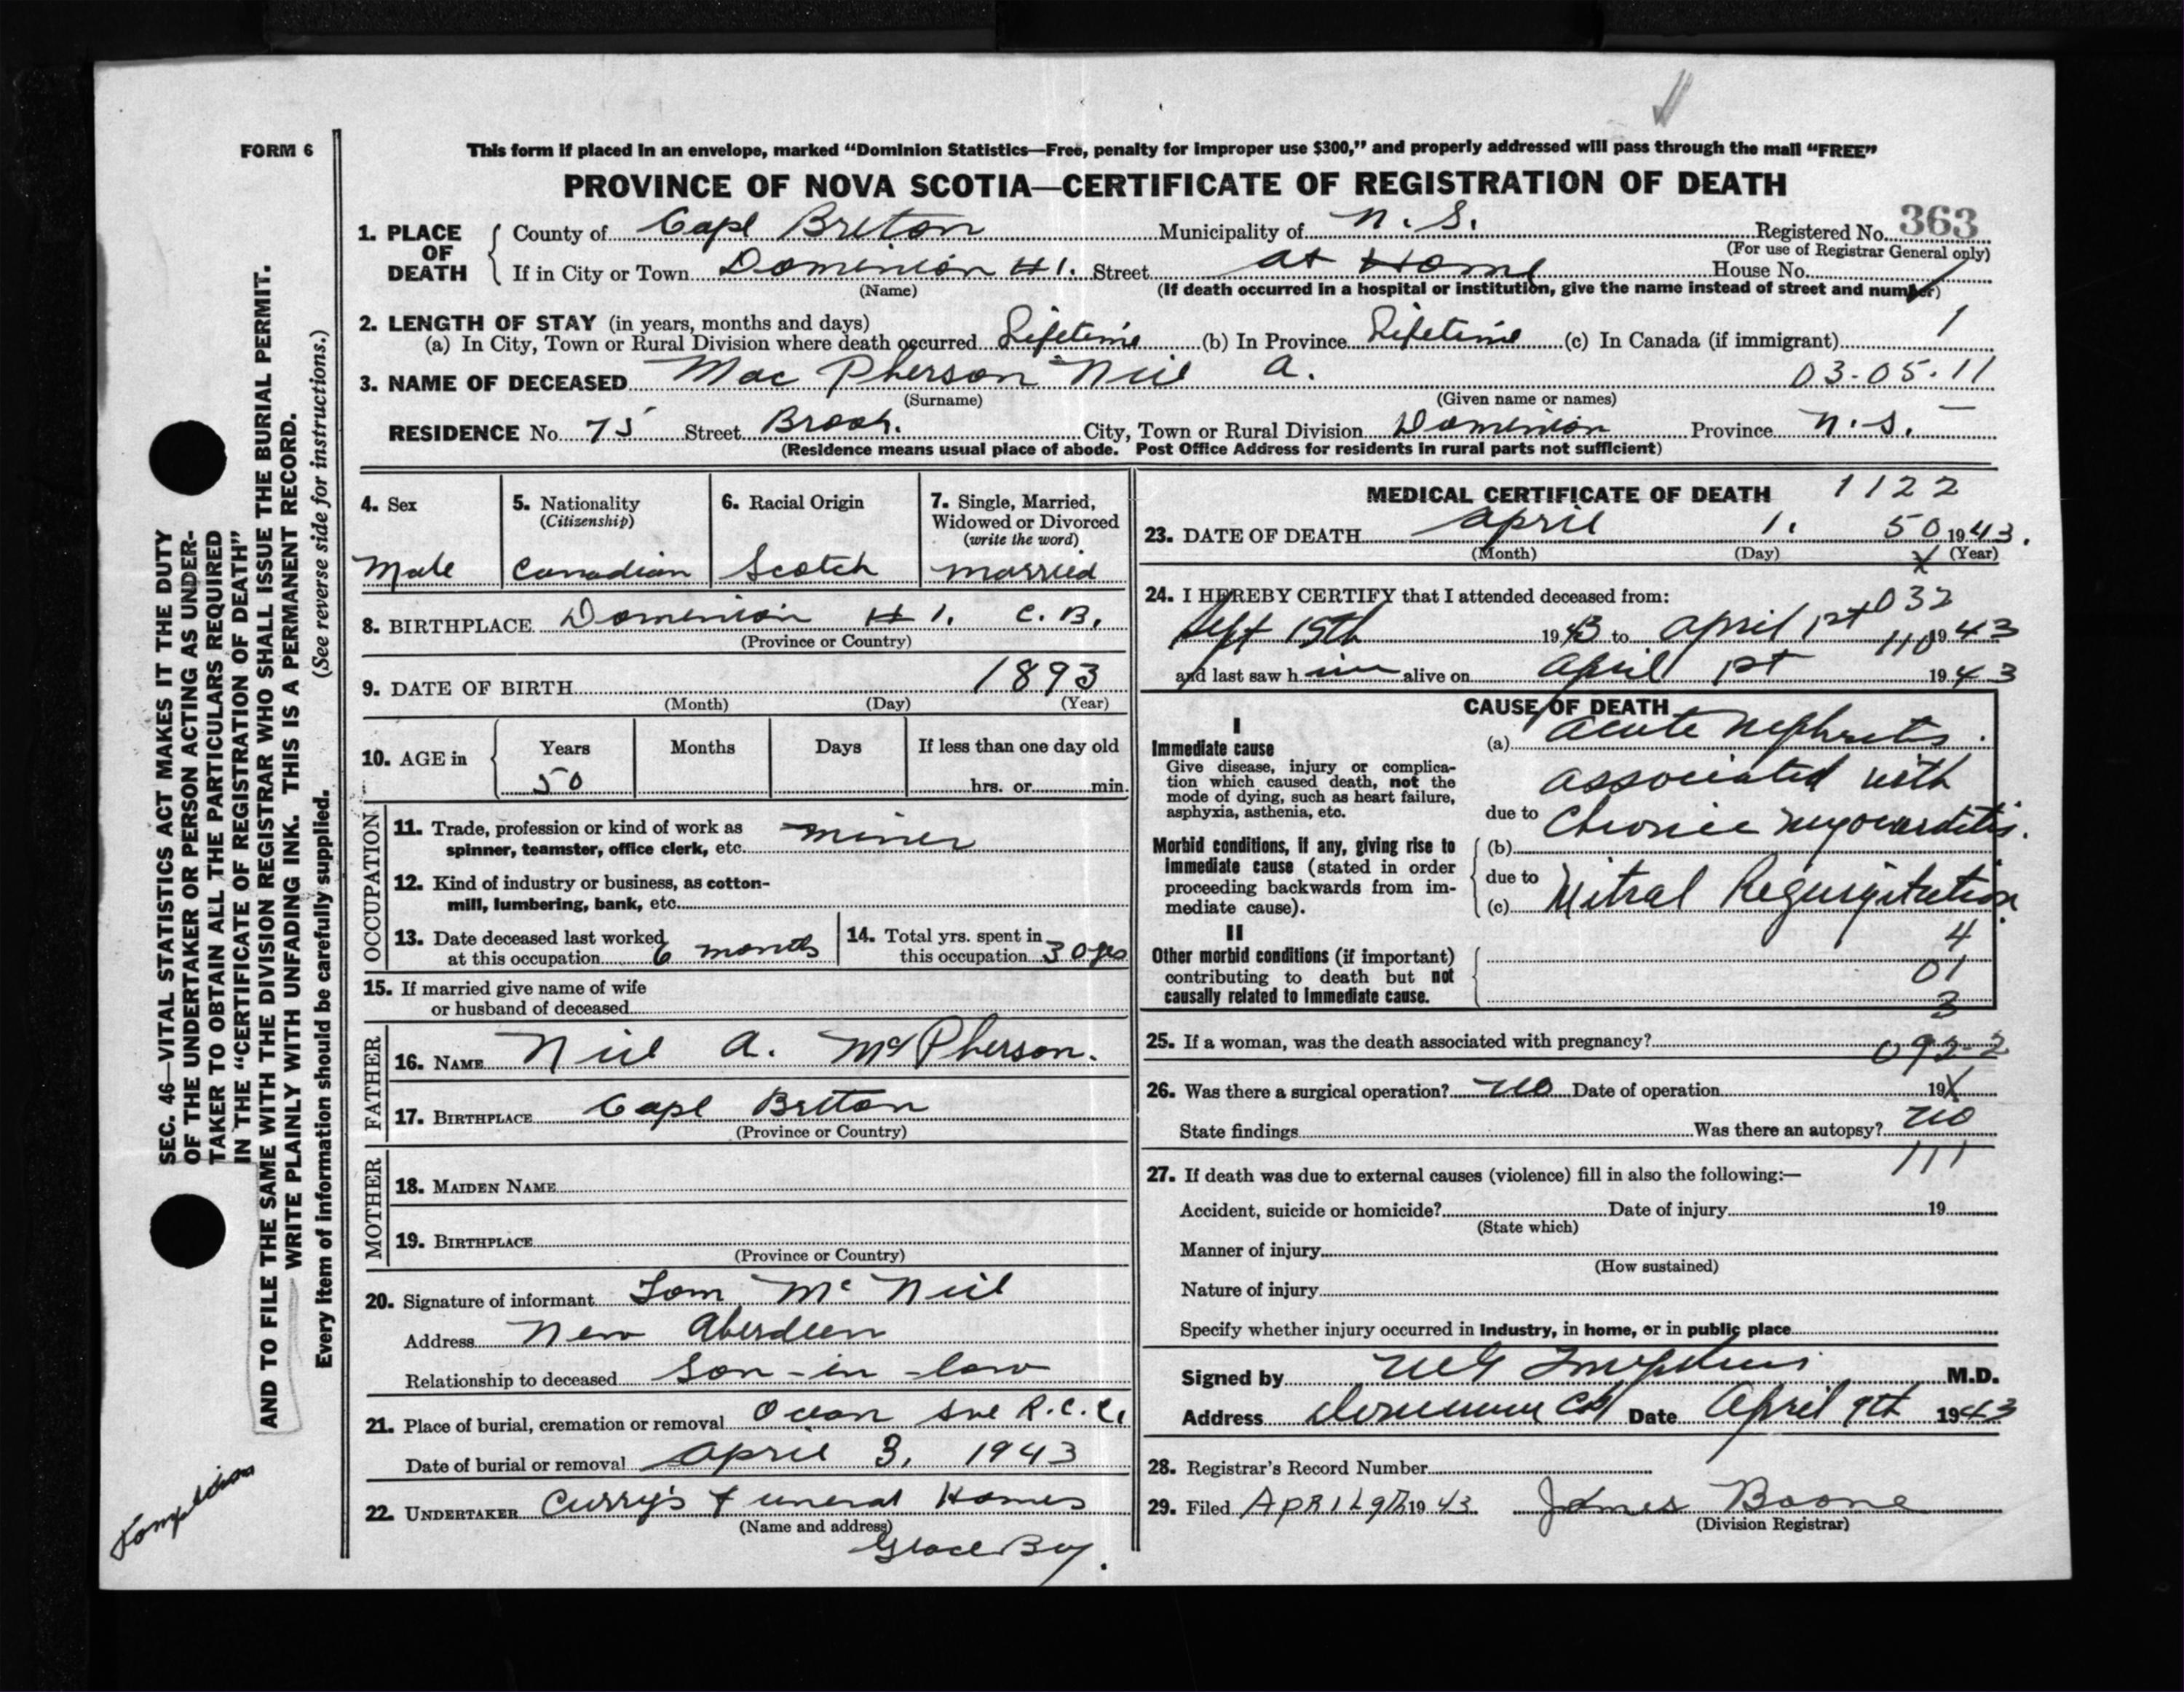 FORM 6
This form if placed in an envelope, marked “Dominion Statistics—Free, penalty for improper use $300,” and properly addressed will pass through the mail “FREE”
PROVINCE OF NOVA SCOTIA—CERTIFICATE OF REGISTRATION OF DEATH
1. PLACE OF DEATH
County of Cape Breton Municipality of N. S. Registered No. 363
(For use of Registrar General only)
If in City or Town Dominion #1. Street at Home House No.
(Name) (If death occurred in a hospital or institution, give the name instead of street and number)
2. LENGTH OF STAY (in years, months and days) 1
(a) In City, Town or Rural Division where death occurred Lifetime (b) In Province Lifetime (c) In Canada (if immigrant)
3. NAME OF DECEASED Mac Pherson Neil A. 03-05-11
(Surname) (Given name or names)
RESIDENCE No. 75 Street Brook. City, Town or Rural Division Dominion Province N.S.
(Residence means usual place of abode. Post Office Address for residents in rural parts not sufficient)
4. Sex
Male
5. Nationality
(Citizenship)
Canadian
6. Racial Origin
Scotch
7. Single, Married,
Widowed or Divorced
(write the word)
married
8. BIRTHPLACE Dominion #1. C.B.
(Province or Country)
9. DATE OF BIRTH 1893
(Month) (Day) (Year)
10. AGE in
Years Months Days If less than one day old
50 hrs. or min.
OCCUPATION
11. Trade, profession or kind of work as
spinner, teamster, office clerk, etc. miner
12. Kind of industry or business, as cotton-
mill, lumbering, bank, etc.
13. Date deceased last worked
at this occupation 6 months
14. Total yrs. spent in
this occupation 30 yrs
15. If married give name of wife
or husband of deceased
FATHER
16. NAME Neil A. McPherson.
17. BIRTHPLACE Cape Breton
(Province or Country)
MOTHER
18. MAIDEN NAME
19. BIRTHPLACE
(Province or Country)
20. Signature of informant Tom McNeil
Address New Aberdeen
Relationship to deceased Son-in-law
21. Place of burial, cremation or removal Ocean Ave R.C.C.
Date of burial or removal April 3, 1943
22. UNDERTAKER Curry's Funeral Homes
(Name and address)
Glace Bay.
MEDICAL CERTIFICATE OF DEATH 1122
23. DATE OF DEATH April 1. 50 1943.
(Month) (Day) (Year)
24. I HEREBY CERTIFY that I attended deceased from:
032
Sept 15th 1943 to April 1st 1943
110
and last saw h im alive on April 1st 1943
CAUSE OF DEATH
I
Immediate cause
Give disease, injury or complica-
tion which caused death, not the
mode of dying, such as heart failure,
asphyxia, asthenia, etc.
(a) Acute Nephritis.
associated with
due to Chronic myocarditis.
Morbid conditions, if any, giving rise to
immediate cause (stated in order
proceeding backwards from im-
mediate cause).
(b)
due to
(c) Mitral Regurgitation
II
Other morbid conditions (if important)
contributing to death but not
causally related to immediate cause.
4
01
3
25. If a woman, was the death associated with pregnancy?
092-2
26. Was there a surgical operation? no Date of operation 19
State findings Was there an autopsy? no
111
27. If death was due to external causes (violence) fill in also the following:—
Accident, suicide or homicide? Date of injury 19
(State which)
Manner of injury
(How sustained)
Nature of injury
Specify whether injury occurred in industry, in home, or in public place
Signed by M.D.
Address Dominion CB Date April 9th 1943
28. Registrar's Record Number
29. Filed APRIL 9th 1943 James Boone
(Division Registrar)
SEC. 46—VITAL STATISTICS ACT MAKES IT THE DUTY
OF THE UNDERTAKER OR PERSON ACTING AS UNDER-
TAKER TO OBTAIN ALL THE PARTICULARS REQUIRED
IN THE “CERTIFICATE OF REGISTRATION OF DEATH”
AND TO FILE THE SAME WITH THE DIVISION REGISTRAR WHO SHALL ISSUE THE BURIAL PERMIT.
WRITE PLAINLY WITH UNFADING INK. THIS IS A PERMANENT RECORD.
Every item of information should be carefully supplied. (See reverse side for instructions.)